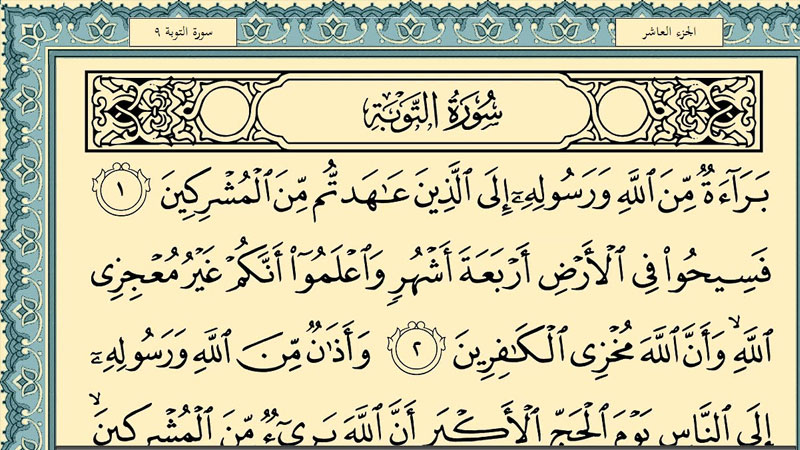 الجزء العاشر
سورة التوبة ٩
سُورَةُ التَّوْبَةِ
بَرَآءَةٌ مِّنَ ٱللَّهِ وَرَسُولِهِۦٓ إِلَى ٱلَّذِينَ عَٰهَدتُّم مِّنَ ٱلْمُشْرِكِينَ ١
فَسِيحُوا۟ فِى ٱلْأَرْضِ أَرْبَعَةَ أَشْهُرٍ وَٱعْلَمُوٓا۟ أَنَّكُمْ غَيْرُ مُعْجِزِى
ٱللَّهِ ۙ وَأَنَّ ٱللَّهَ مُخْزِى ٱلْكَٰفِرِينَ ٢ وَأَذَٰنٌ مِّنَ ٱللَّهِ وَرَسُولِهِۦٓ
إِلَى ٱلنَّاسِ يَوْمَ ٱلْحَجِّ ٱلْأَكْبَرِ أَنَّ ٱللَّهَ بَرِىٓءٌ مِّنَ ٱلْمُشْرِكِينَ ۙ